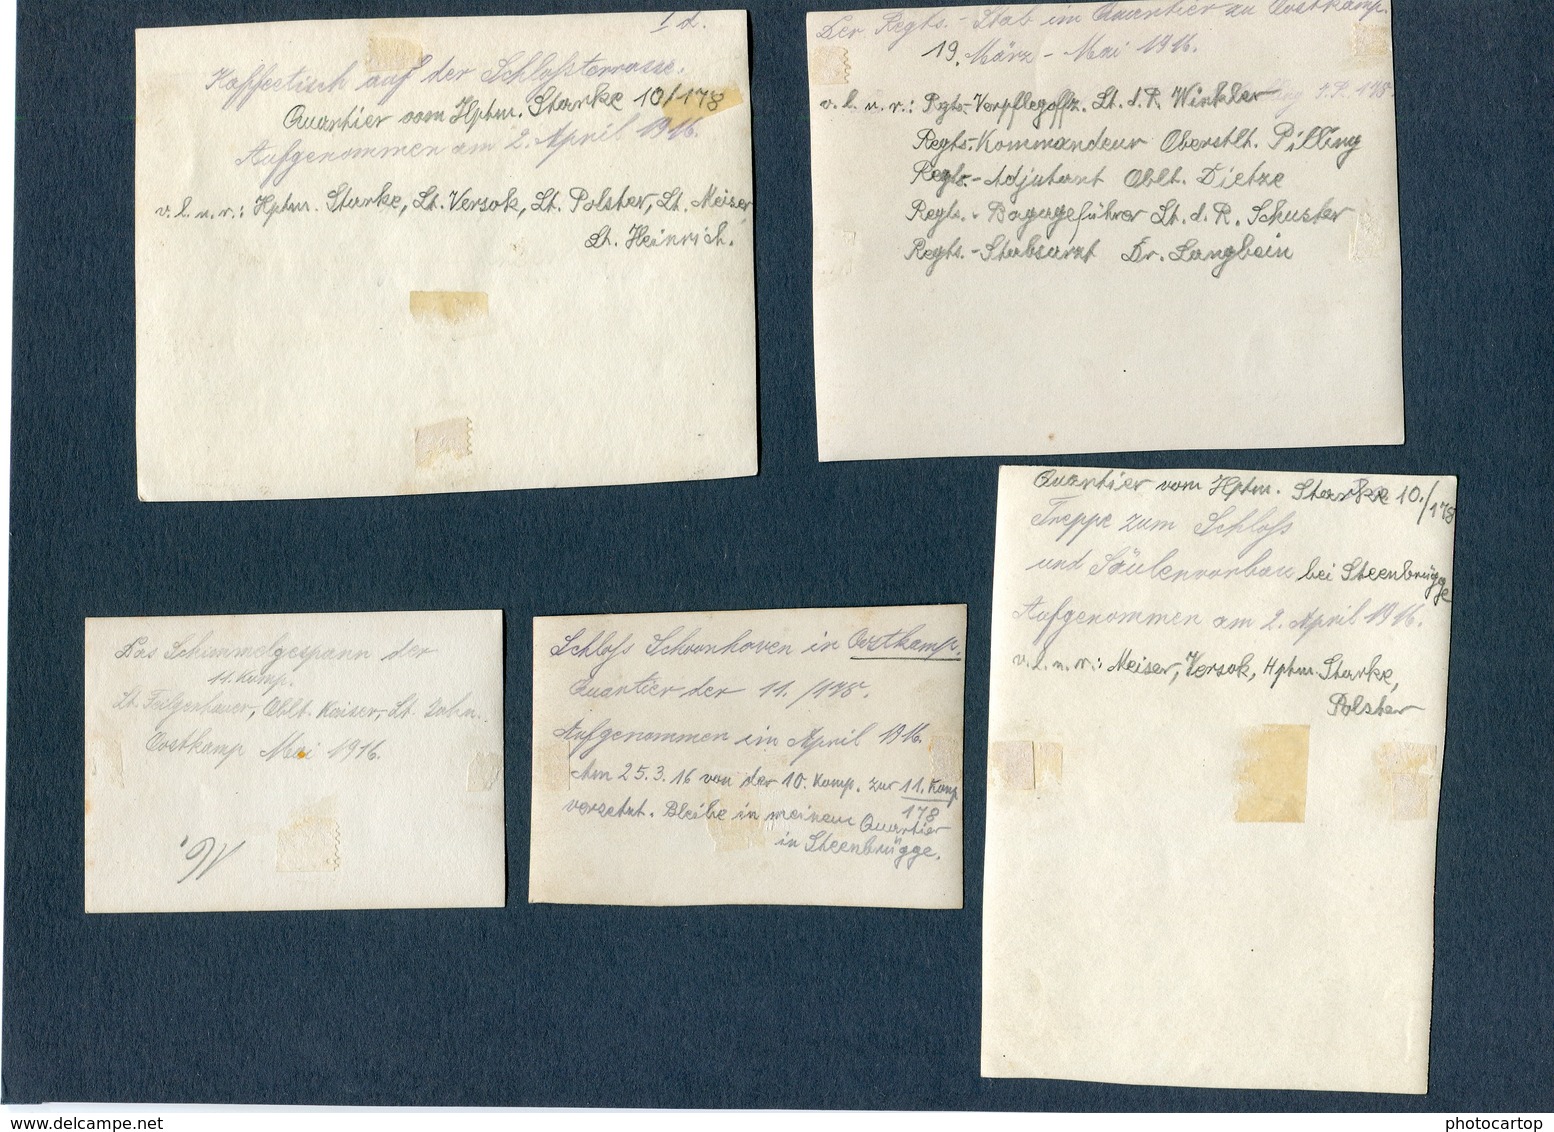 I d.
Kaffeetisch auf der Schloßterrasse.
Quartier vom Hptm. Starke 10/178
Aufgenommen am 2. April 1916.
v. l. n. r.: Hptm. Starke, Lt. Versok, Lt. Polster, Lt. Meiser,
Lt. Heinrich.
Der Regts.-Stab im Quartier zu Oostkamp.
19. März - Mai 1916.
v. l. n. r.: Rgts-Verpflegoffz. Lt. d. R. Winkler
Regts.-Kommandeur Oberstlt. Pilling
Regts.-Adjutant Oblt. Dietze
Regts.-Bagageführer Lt. d. R. Schuster
Regts.-Stabsarzt Dr. Langbein
Das Schimmelgespann der
11. Komp.
Lt. Oblt. Kaiser, Lt. Zahn.
Oostkamp Mai 1916.
Schloß Schoonhoven in Oostkamp.
Quartier der 11./178.
Aufgenommen im April 1916.
Am 25.3.16 von der 10. Komp. zur 11. Komp
178
versetzt. Bleibe in meinem Quartier
in Steenbrügge.
Quartier vom Hptm. Starke 10./178
Treppe zum Schloß
und Säulenvorbau bei Steenbrügge
Aufgenommen am 2. April 1916.
v. l. n. r.: Meiser, Versok, Hptm. Starke,
Polster
www.delcampe.net
photocartop